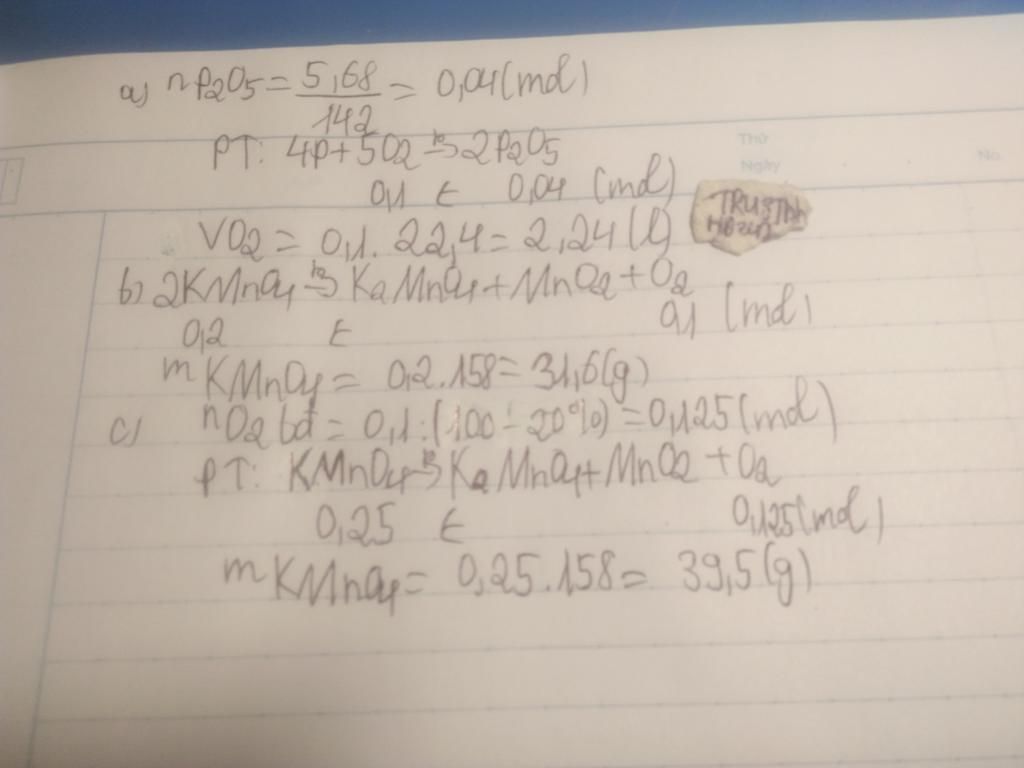 a) nP2O5 = 5,68/142 = 0,04 (mol)
PT: 4P + 5O2 t°→ 2P2O5
0,1 ← 0,04 (mol)
VO2 = 0,1 . 22,4 = 2,24 (l)
b) 2KMnO4 t°→ K2MnO4 + MnO2 + O2
0,2 ← 0,1 (mol)
mKMnO4 = 0,2 . 158 = 31,6 (g)
c) nO2 bđ = 0,1 : (100 - 20%) = 0,125 (mol)
PT: KMnO4 t°→ K2MnO4 + MnO2 + O2
0,25 ← 0,125 (mol)
mKMnO4 = 0,25 . 158 = 39,5 (g)
Thứ
Ngày
No.